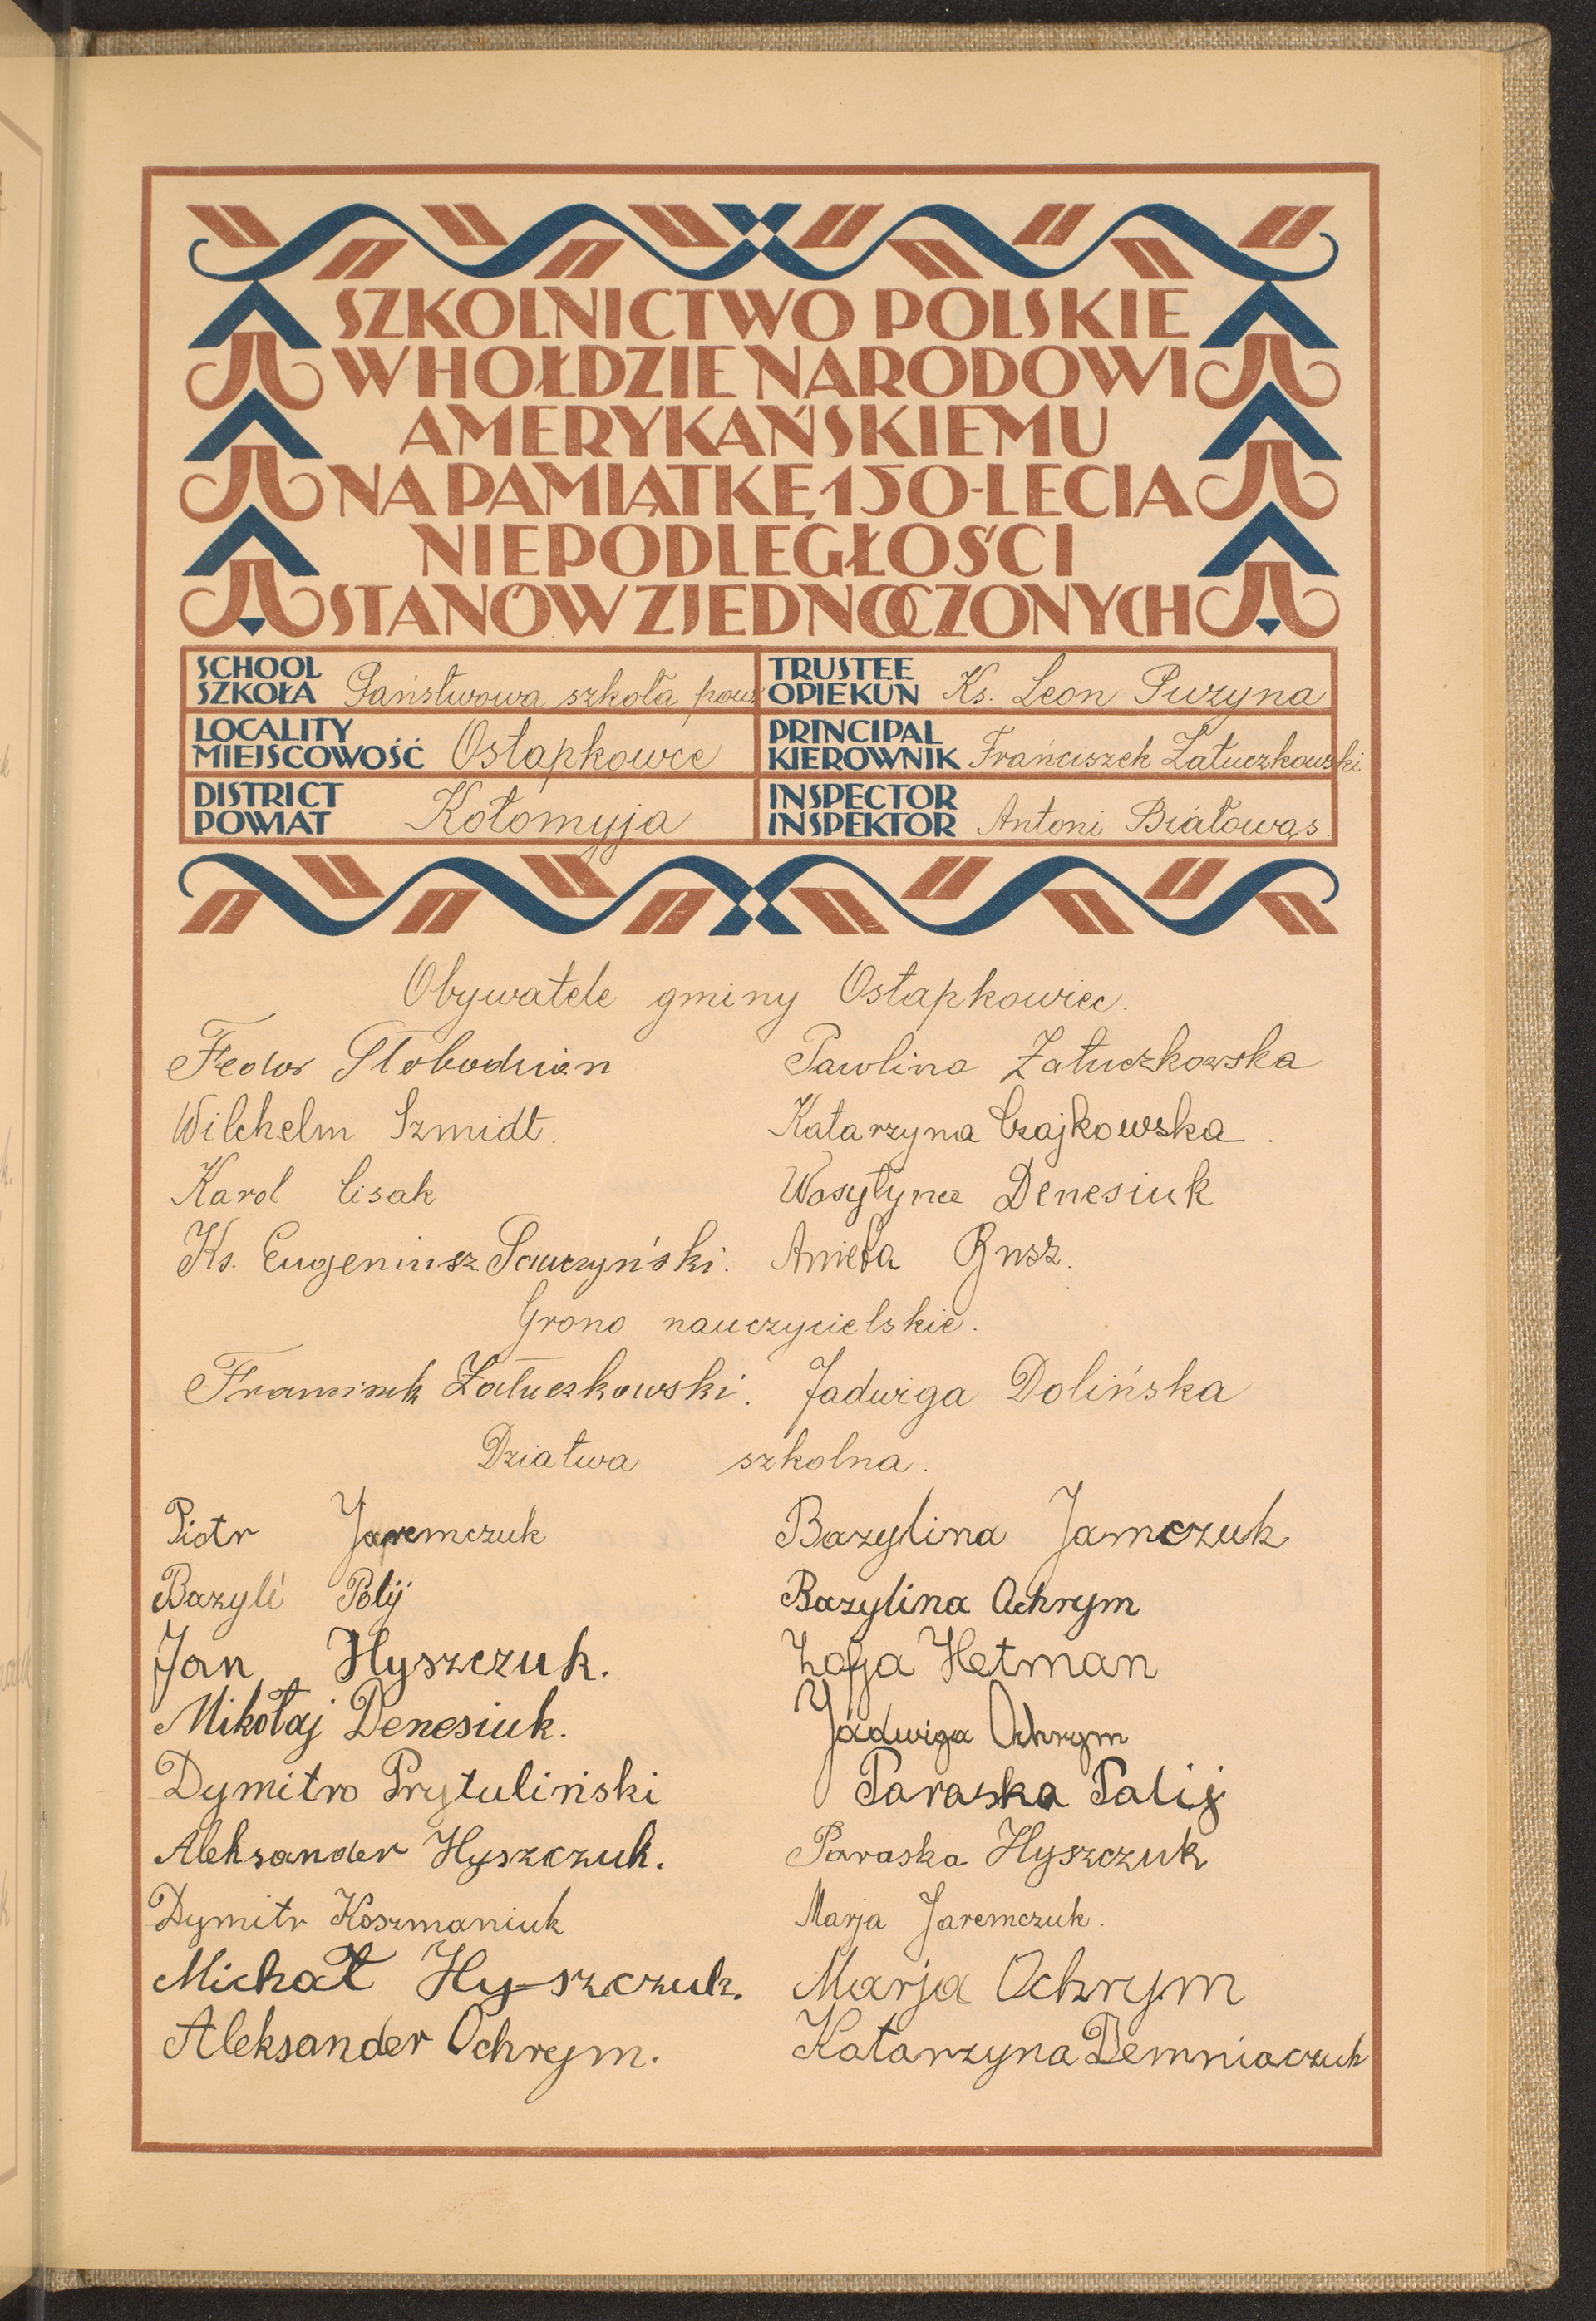 SZKOLNICTWO POLSKIE
W HOŁDZIE NARODOWI
AMERYKAŃSKIEMU
NA PAMIĄTKĘ 150-LECIA
NIEPODLEGŁOŚCI
STANÓW ZJEDNOCZONYCH
SCHOOL
SZKOŁA Państwowa szkoła pow
TRUSTEE
OPIEKUN Ks. Leon Puzyna
LOCALITY
MIEJSCOWOŚĆ Ostapkowce
PRINCIPAL
KIEROWNIK Franciszek Załuczkowski
DISTRICT
POWIAT Kołomyja
INSPECTOR
INSPEKTOR Antoni Białowąs.
Obywatele gminy Ostapkowiec.
Fedor
Pawlina Załuczkowska
Wilchelm Szmidt.
Katarzyna Czajkowska.
Karol Cisak
Wasyłyna Denesiuk
Ks. Eugeniusz
Aniela
Grono nauczycielskie.
Franciszek Załuczkowski. Jadwiga Dolińska
Dziatwa szkolna.
Piotr Jaremczuk
Bazylina Jamczuk
Bazyli Polij
Bazylina Ochrym
Jan Hyszczuk.
Zofja Hetman
Mikołaj Denesiuk.
Jadwiga Ochrym
Dymitro Prytuliński
Paraska Palij
Aleksander Hyszczuk.
Paraska Hyszczuk
Dymitr Koszmaniuk
Marja Jaremczuk.
Michał Hyszczuk.
Marja Ochrym
Aleksander Ochrym.
Katarzyna Demniaczuk